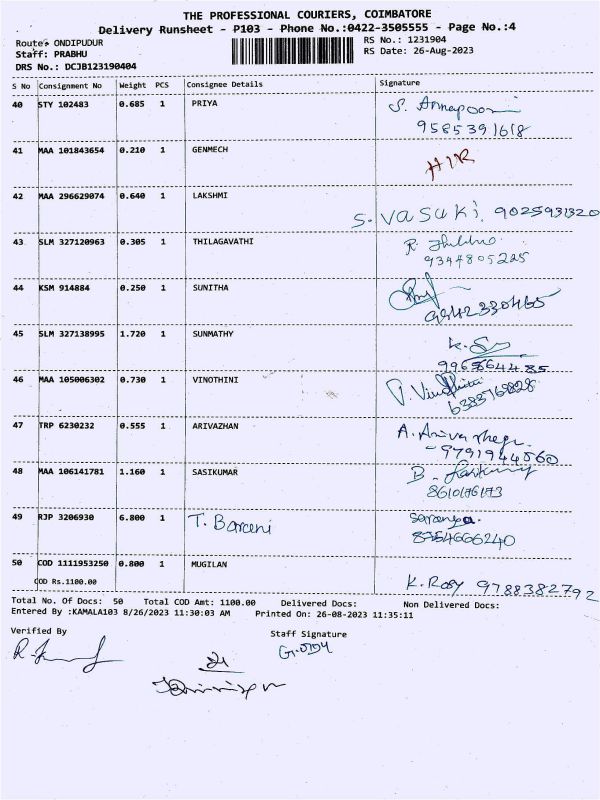 THE PROFESSIONAL COURIERS, COIMBATORE
Delivery Runsheet - P103 - Phone No.:0422-3505555 - Page No.:4
Route: ONDIPUDUR
Staff: PRABHU
DRS No.: DCJB123190404
RS No.: 1231904
RS Date: 26-Aug-2023
S No Consignment No Weight PCS Consignee Details Signature
40 STY 102483 0.685 1 PRIYA S. Annapoorni
9585391618
41 MAA 101843654 0.210 1 GENMECH H/R
42 MAA 296629074 0.640 1 LAKSHMI
S. vasuki. 9025931320
43 SLM 327120963 0.305 1 THILAGAVATHI
9344805225
44 KSM 914884 0.250 1 SUNITHA
45 SLM 327138995 1.720 1 SUNMATHY
46 MAA 105006302 0.730 1 VINOTHINI
6383769828
47 TRP 6230232 0.555 1 ARIVAZHAN
9791944560
48 MAA 106141781 1.160 1 SASIKUMAR
49 RJP 3206930 6.800 1 T. Barceni
8754666240
50 COD 1111953250 0.800 1 MUGILAN
COD Rs.1100.00 K. Rosy 9788382792
Total No. Of Docs: 50 Total COD Amt: 1100.00 Delivered Docs: Non Delivered Docs:
Entered By :KAMALA103 8/26/2023 11:30:03 AM Printed On: 26-08-2023 11:35:11
Verified By
Staff Signature